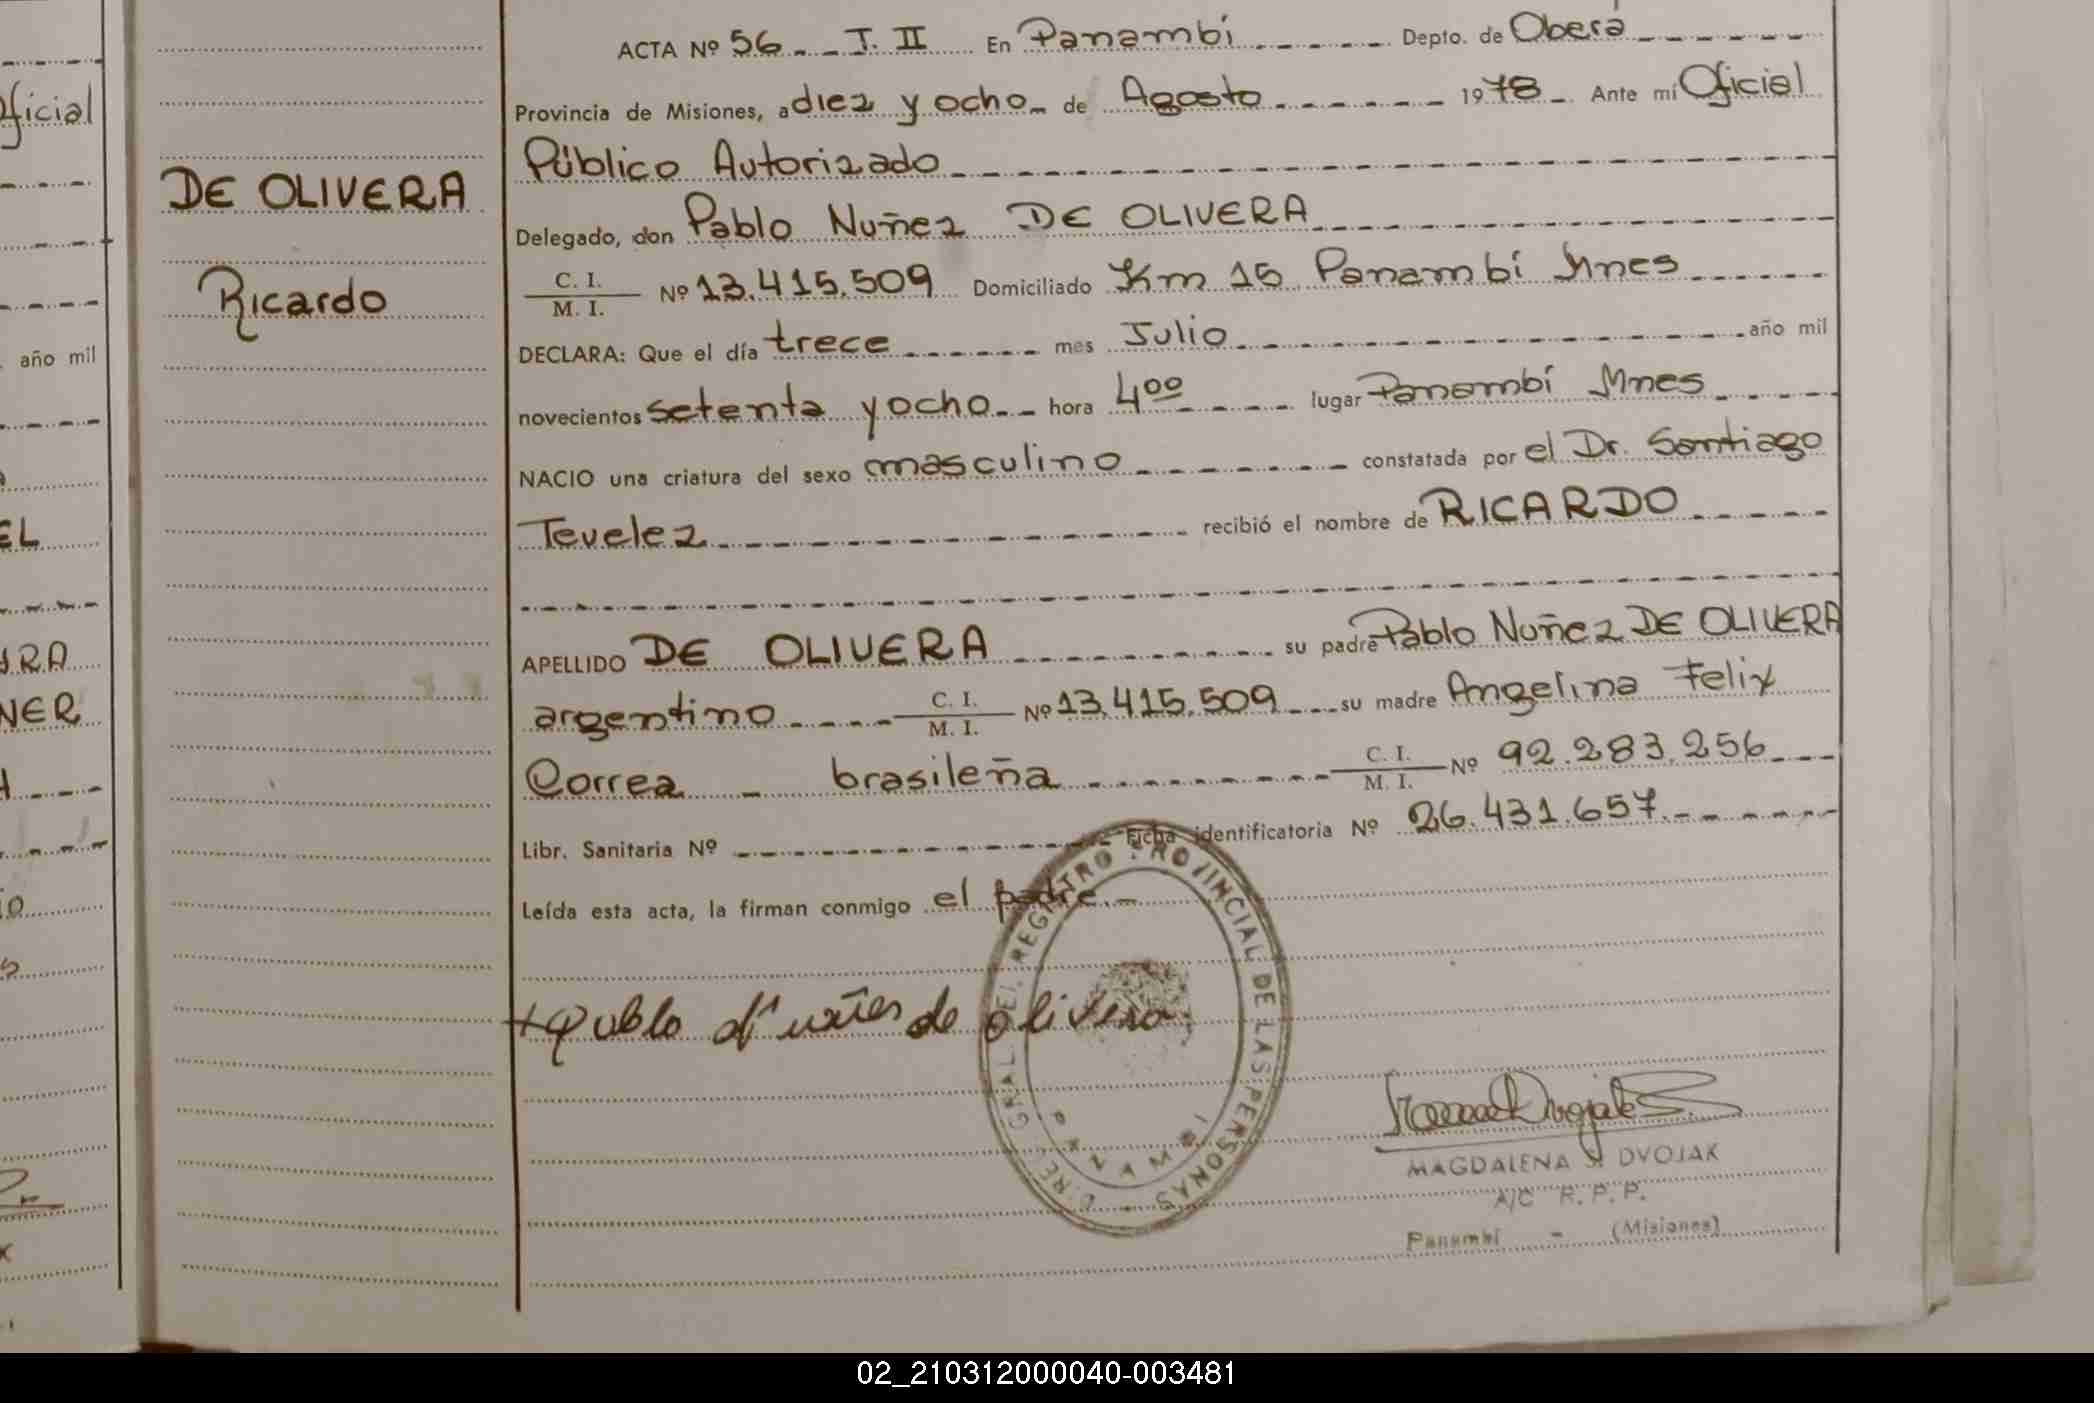 ACTA Nº 56 - - T. II En Panambí Depto. de Oberá
Provincia de Misiones, a diez y ocho de Agosto 1978 - Ante mí Oficial
Público Autorizado
Delegado, don Pablo Nuñez DE OLIVERA
C. I.
M. I.
Nº 13.415.509 Domiciliado Km 15 Panambí Mnes
DECLARA: Que el día trece mes Julio año mil
novecientos setenta y ocho hora 4⁰⁰ lugar Panambí Mnes
NACIO una criatura del sexo masculino constatada por el Dr. Santiago
Tevelez recibió el nombre de RICARDO
APELLIDO DE OLIVERA su padre Pablo Nuñez DE OLIVERA
argentino C. I. M. I. Nº 13.415.509 su madre Angelina Felix
Correa - brasileña C. I. M. I. Nº 92.283.256
Libr. Sanitaria Nº Ficha identificatoria Nº 26.431.657.
Leída esta acta, la firman conmigo el padre. -
DE OLIVERA
Ricardo
GRAL DEL REGISTRO PROVINCIAL DE LAS PERSONAS
PANAMBI
MAGDALENA DVOJAK
A/C R. P. P.
Panambí - (Misiones)
oficial
año mil
EL
NER
02_210312000040-003481